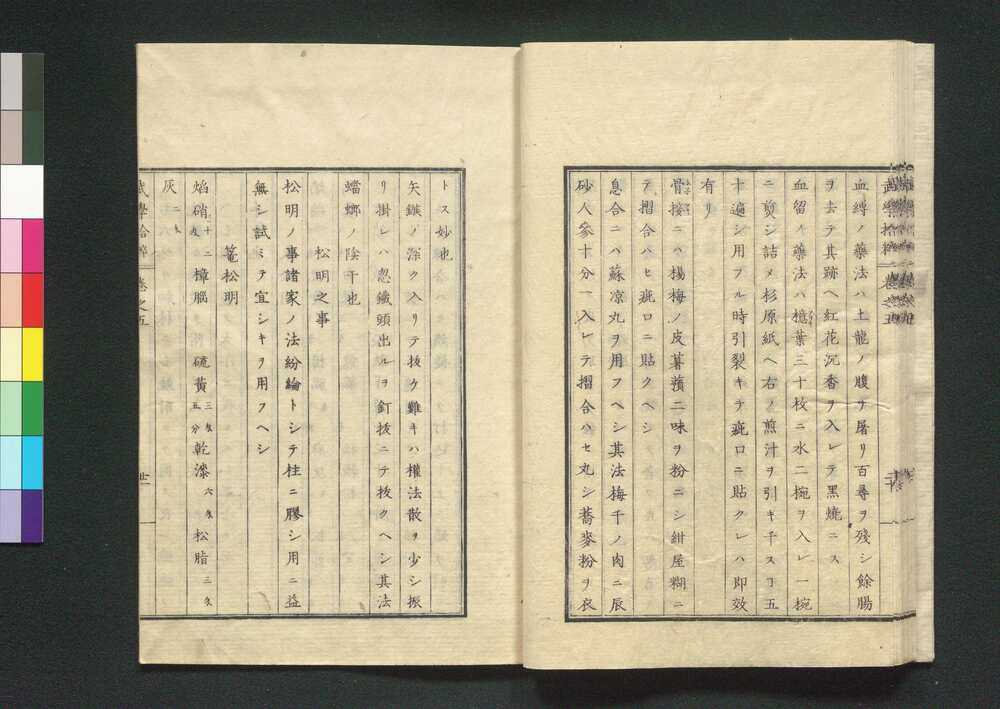 血縛ノ藥法ハ土龍ノ腹ヲ屠リ百尋ヲ殘シ餘腸
ヲ去テ其跡ヘ紅花沉香ヲ入レテ黒燒ニス
血留ノ藥法ハ檍葉三十枚ニ水二椀ヲ入レ一椀
ニ煎シ詰メ杉原紙ヘ右ノ煎汁ヲ引キ干スヿ五
十遍シ用フル時引裂キテ疵口ニ貼クレハ即效
有リ
骨接ニハ楊梅ノ皮薯蕷二味ヲ粉ニシ紺屋糊ニ
テ摺合ハセ疵口ニ貼クヘシ
息合ニハ蘇凉丸ヲ用フヘシ其法梅干ノ肉ニ辰
砂人參十分一入レテ摺合ハセ丸シ蕎麥粉ヲ衣
トス妙也
矢鏃ノ深ク入リテ拔ケ難キハ權法散ヲ少シ振
リ掛レハ忽鐵頭出ルヲ釘拔ニテ拔クヘシ其法
蟷螂ノ陰干也
松明之事
松明ノ事諸家ノ法紛綸トシテ柱ニ膠シ用ニ益
無シ試ミテ宜シキヲ用フヘシ
篭松明
焰硝 十二匁 樟腦 硫黄 三匁五分 乾漆 六匁 松脂 三匁
灰 二匁
武學拾粹 卷之五 廿一